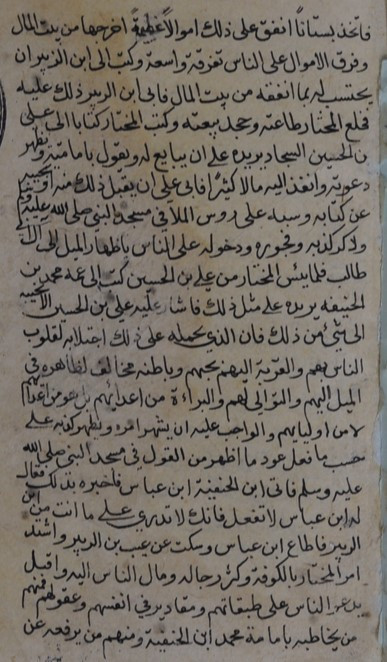 فاتخذ بستاناً انفق على ذلك اموالاً عظيمة اخرجها من بيت المال
وفرق الاموال على الناس تفرقة واسعة وكتب الى ابن الزبير ان
يحتسب له بما انفقه من بيت المال فابى ابن الزبير ذلك عليه
فخلع المختار طاعته وجحد بيعته وكتب المختار كتابا الى على
بن الحسين السجاد يريده على ان يبايع له ويقول بامامته ويظهر
دعوته وانفذ اليه مالا كثيرا فابى على ان يقبل ذلك منه او يجيبه
عن كتابه وسبه على روس الملا في مسجد النبى صلى الله عليه وسلم
وذكر كذبه وفجوره ودخوله على الناس باظهار الميل الى ال ابى
طالب فلما يئس المختار من على بن الحسين كتب الى عمه محمد بن
الحنيفه يريده على مثل ذلك فاشار عليه على بن الحسين ان لا يجيبه
الى شئ من ذلك فان الذي يحمله على ذلك اجتلابه لقلوب
الناس بهم والتقرب اليهم بحبهم وباطنه مخالف لظاهره في
الميل اليهم والتوالى لهم والبراءة من اعدايهم بل هو من اعدايهم
لا من اوليايهم والواجب عليه ان يشهر امره ويظهر كذبه على
حسب ما فعل هو وما اظهر من القول فى مسجد النبى صلى الله
عليه وسلم فاتى ابن الحنفية ابن عباس فاخبره بذلك فقال
له ابن عباس لا تفعل فانك لا تدرى على ما انت من ابن
الزبير فاطاع ابن عباس وسكت عن عيب بن الزبير واشتد
امر المختار بالكوفة وكثر رجاله ومال الناس اليه واقبل
يدعو الناس على طبقاتهم ومقاديرهم فى انفسهم وعقولهم فمنهم
من يخاطبه بامامة محمد ابن الحنفية ومنهم من يرفعه عن